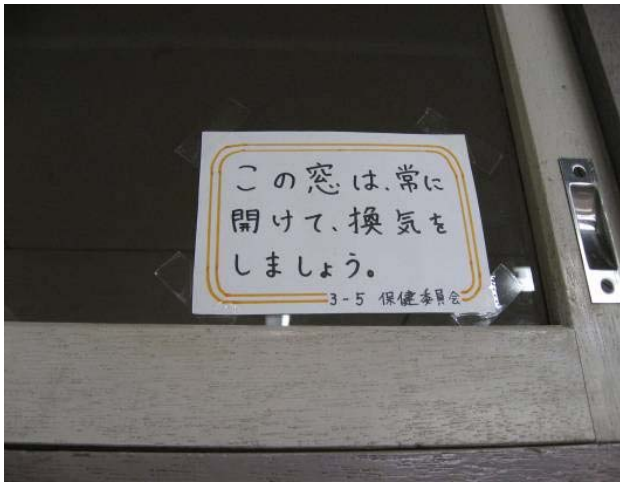 この窓は、常に
開けて、換気を
しましょう。
3-5 保健委員会